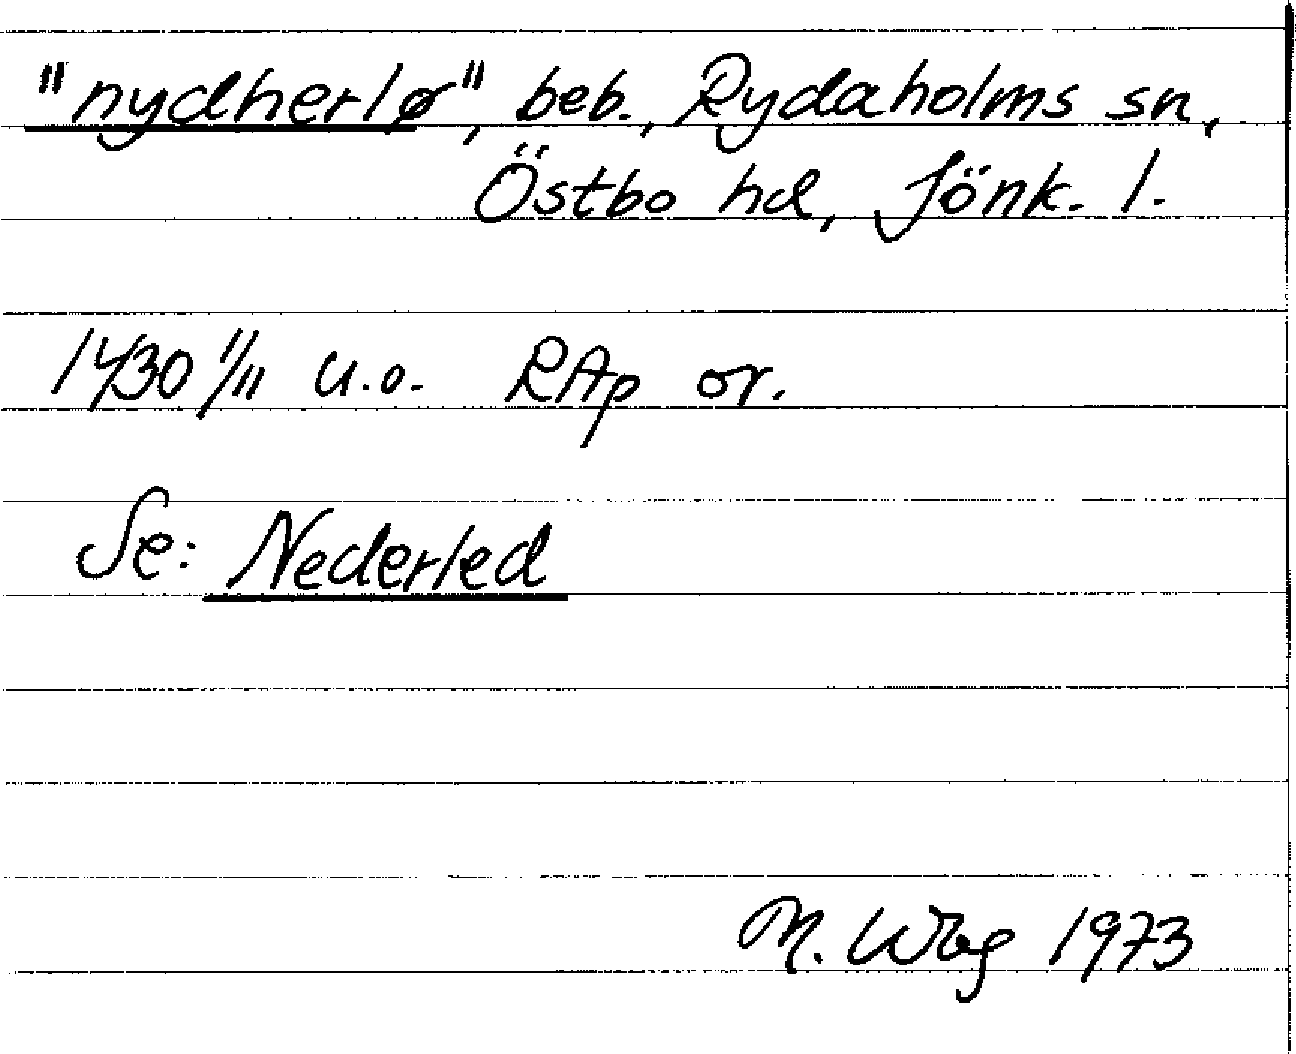 "nydherlø", beb., Rydaholms sn,
Östbo hd, Jönk. l.
1430 1/11 u.o. RAp or.
Se: Nederled
M. Wbg 1973